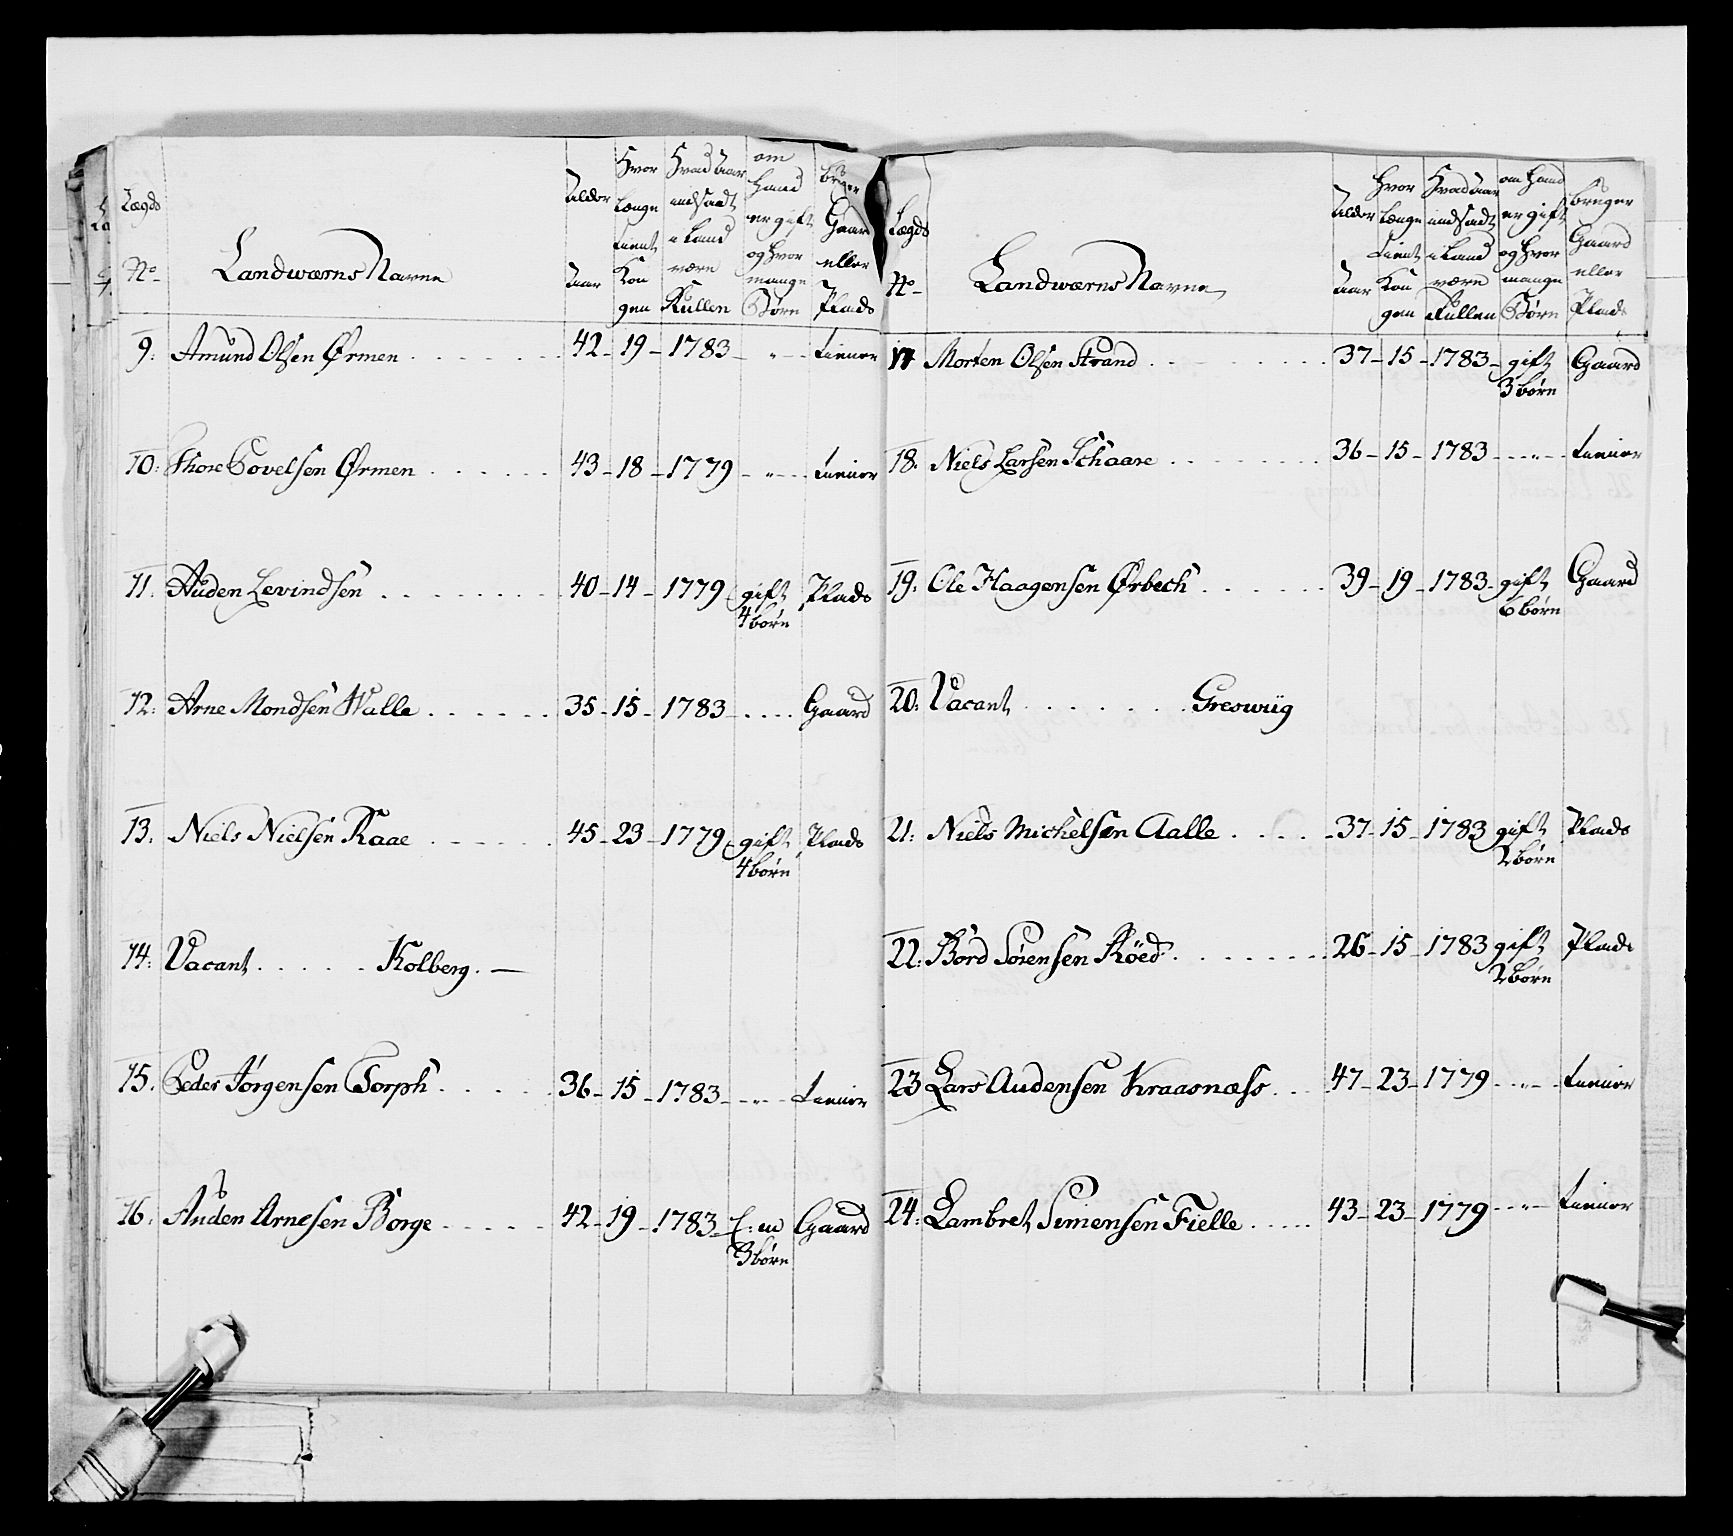 Lægds No. Landwærns Navne Alder Aar Hvor Længe tient Kongen Hvad Aar indsadt i Landværs Rullen om Hand er gift og Hvor mange Børn bruger Gaard eller Plads
9. Amund Olsen Ørmen . . . . . . . 42 - 19 - 1783 - " - tiener
10. Thore Povelsen Ørmen . . . . . . 43 - 18 - 1779 - " - tiener
11. Auden Levindsen . . . . . . . . 40 - 14 - 1779 gift Plads
4 børn
12. Arne Mondsen Walle . . . . . . 35 - 15 - 1783 . . . . Gaard
13. Niels Nielsen Raae . . . . . . 45 - 23 - 1779 gift Plads
4 børn
14. Vacant . . . . . Kolberg. —
15. Peder Jørgensen Torph . . . . . 36 - 15 - 1783 - " - tiener
16. Auden Arnesen Borge . . . . . 42 - 19 - 1783 E: m Gaard
3 børn
Lægds No. Landwærns Navne Alder Aar Hvor Længe tient Kongen Hvad Aar indsadt i Landvære Rullen om Hand er gift og Hvor mange Børn bruger Gaard eller Plads
17 Morten Olsen Strand . . . . . . 37 - 15 - 1783 - gift Gaard
3 børn
18. Niels Larsen Schaare . . . . . . 36 - 15 - 1783 - " - tiener
19. Ole Haagensen Ørbech . . . . . . 39 - 19 - 1783 - gift Gaard
6 børn
20. Vacant . . . . . . . Greswiig
21. Niels Michelsen Aalle . . . . 37 - 15 - 1783 gift Plads
2 børn
22. Bord Sørensen Röed . . . . . . . 26 - 15 - 1783 gift Plads
2 børn
23 Lars Audensen Kraasnæss . . . 47 - 23 - 1779 - " - tiener
24. Lambret Simensen Fielle . . . . 43 - 23 - 1779 - " - tiener